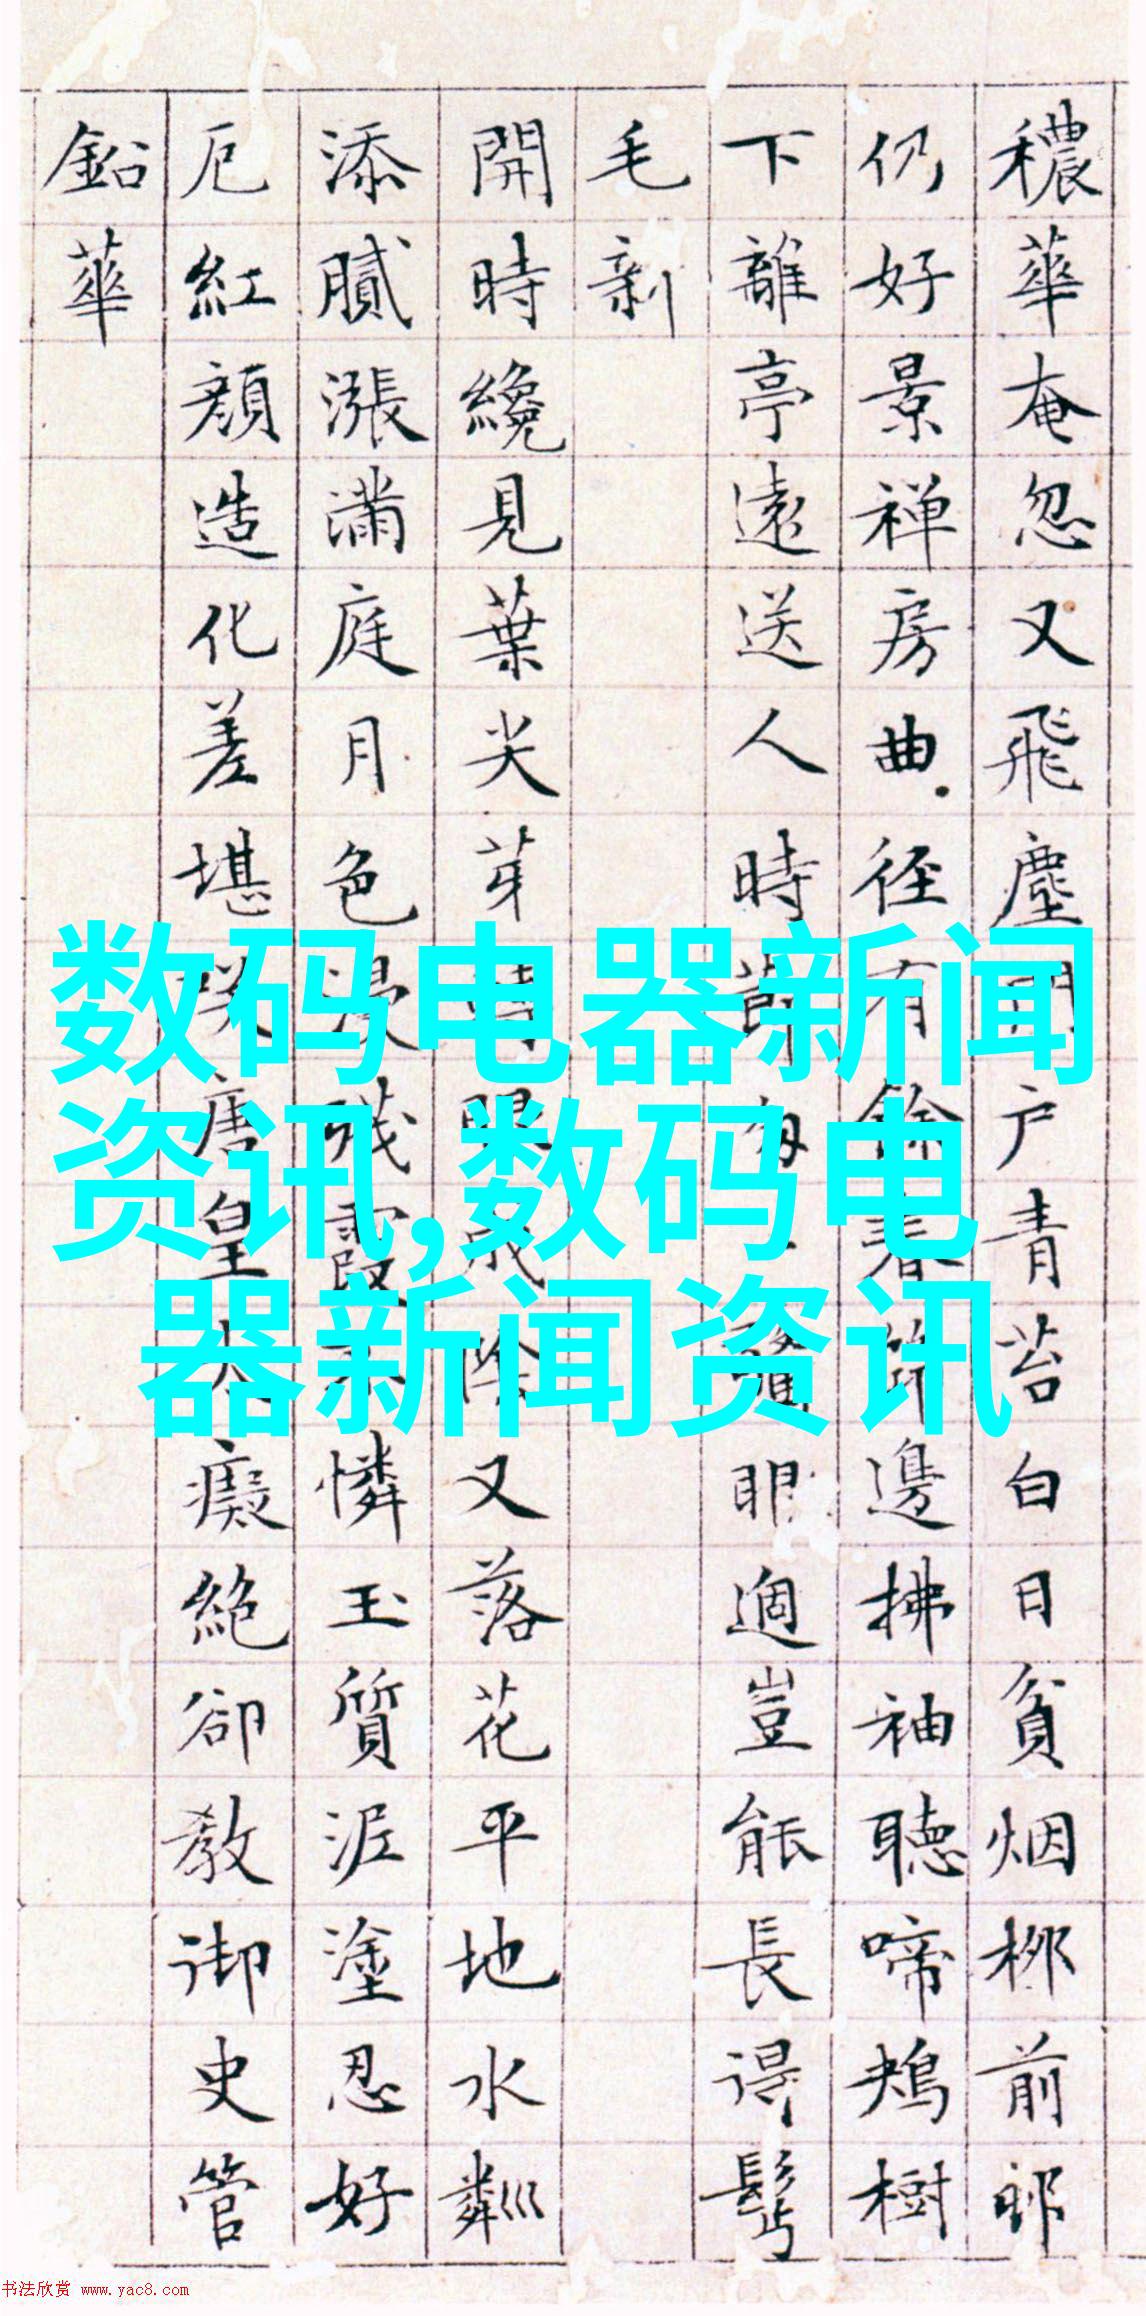 穠華奄忽又飛塵户青苔白日貧烟柳前郎
仍好景禅房曲径有餘春邊拂袖聽啼鴂樹
下離亭遠送人時節眼適豈能長得髩
毛新
開時纔見葉尖芽眼成陰又落花平地水粼巛
添膩漲滿庭月色浸殘霞不憐玉質泥塗忍好
厄紅顔造化差堪咲唐皇太癡絶卻教御史管
鉛華
数码电器新闻
资讯,数码电
器新闻资讯
书法欣赏 www.yac8.com